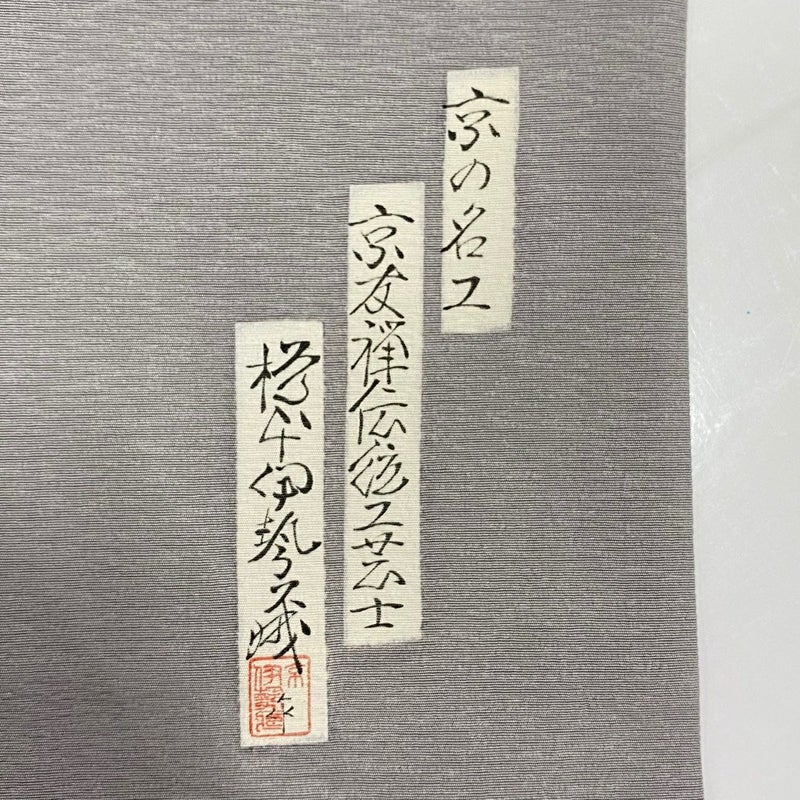 京の名工
京友禅伝統工芸士
伊勢
作